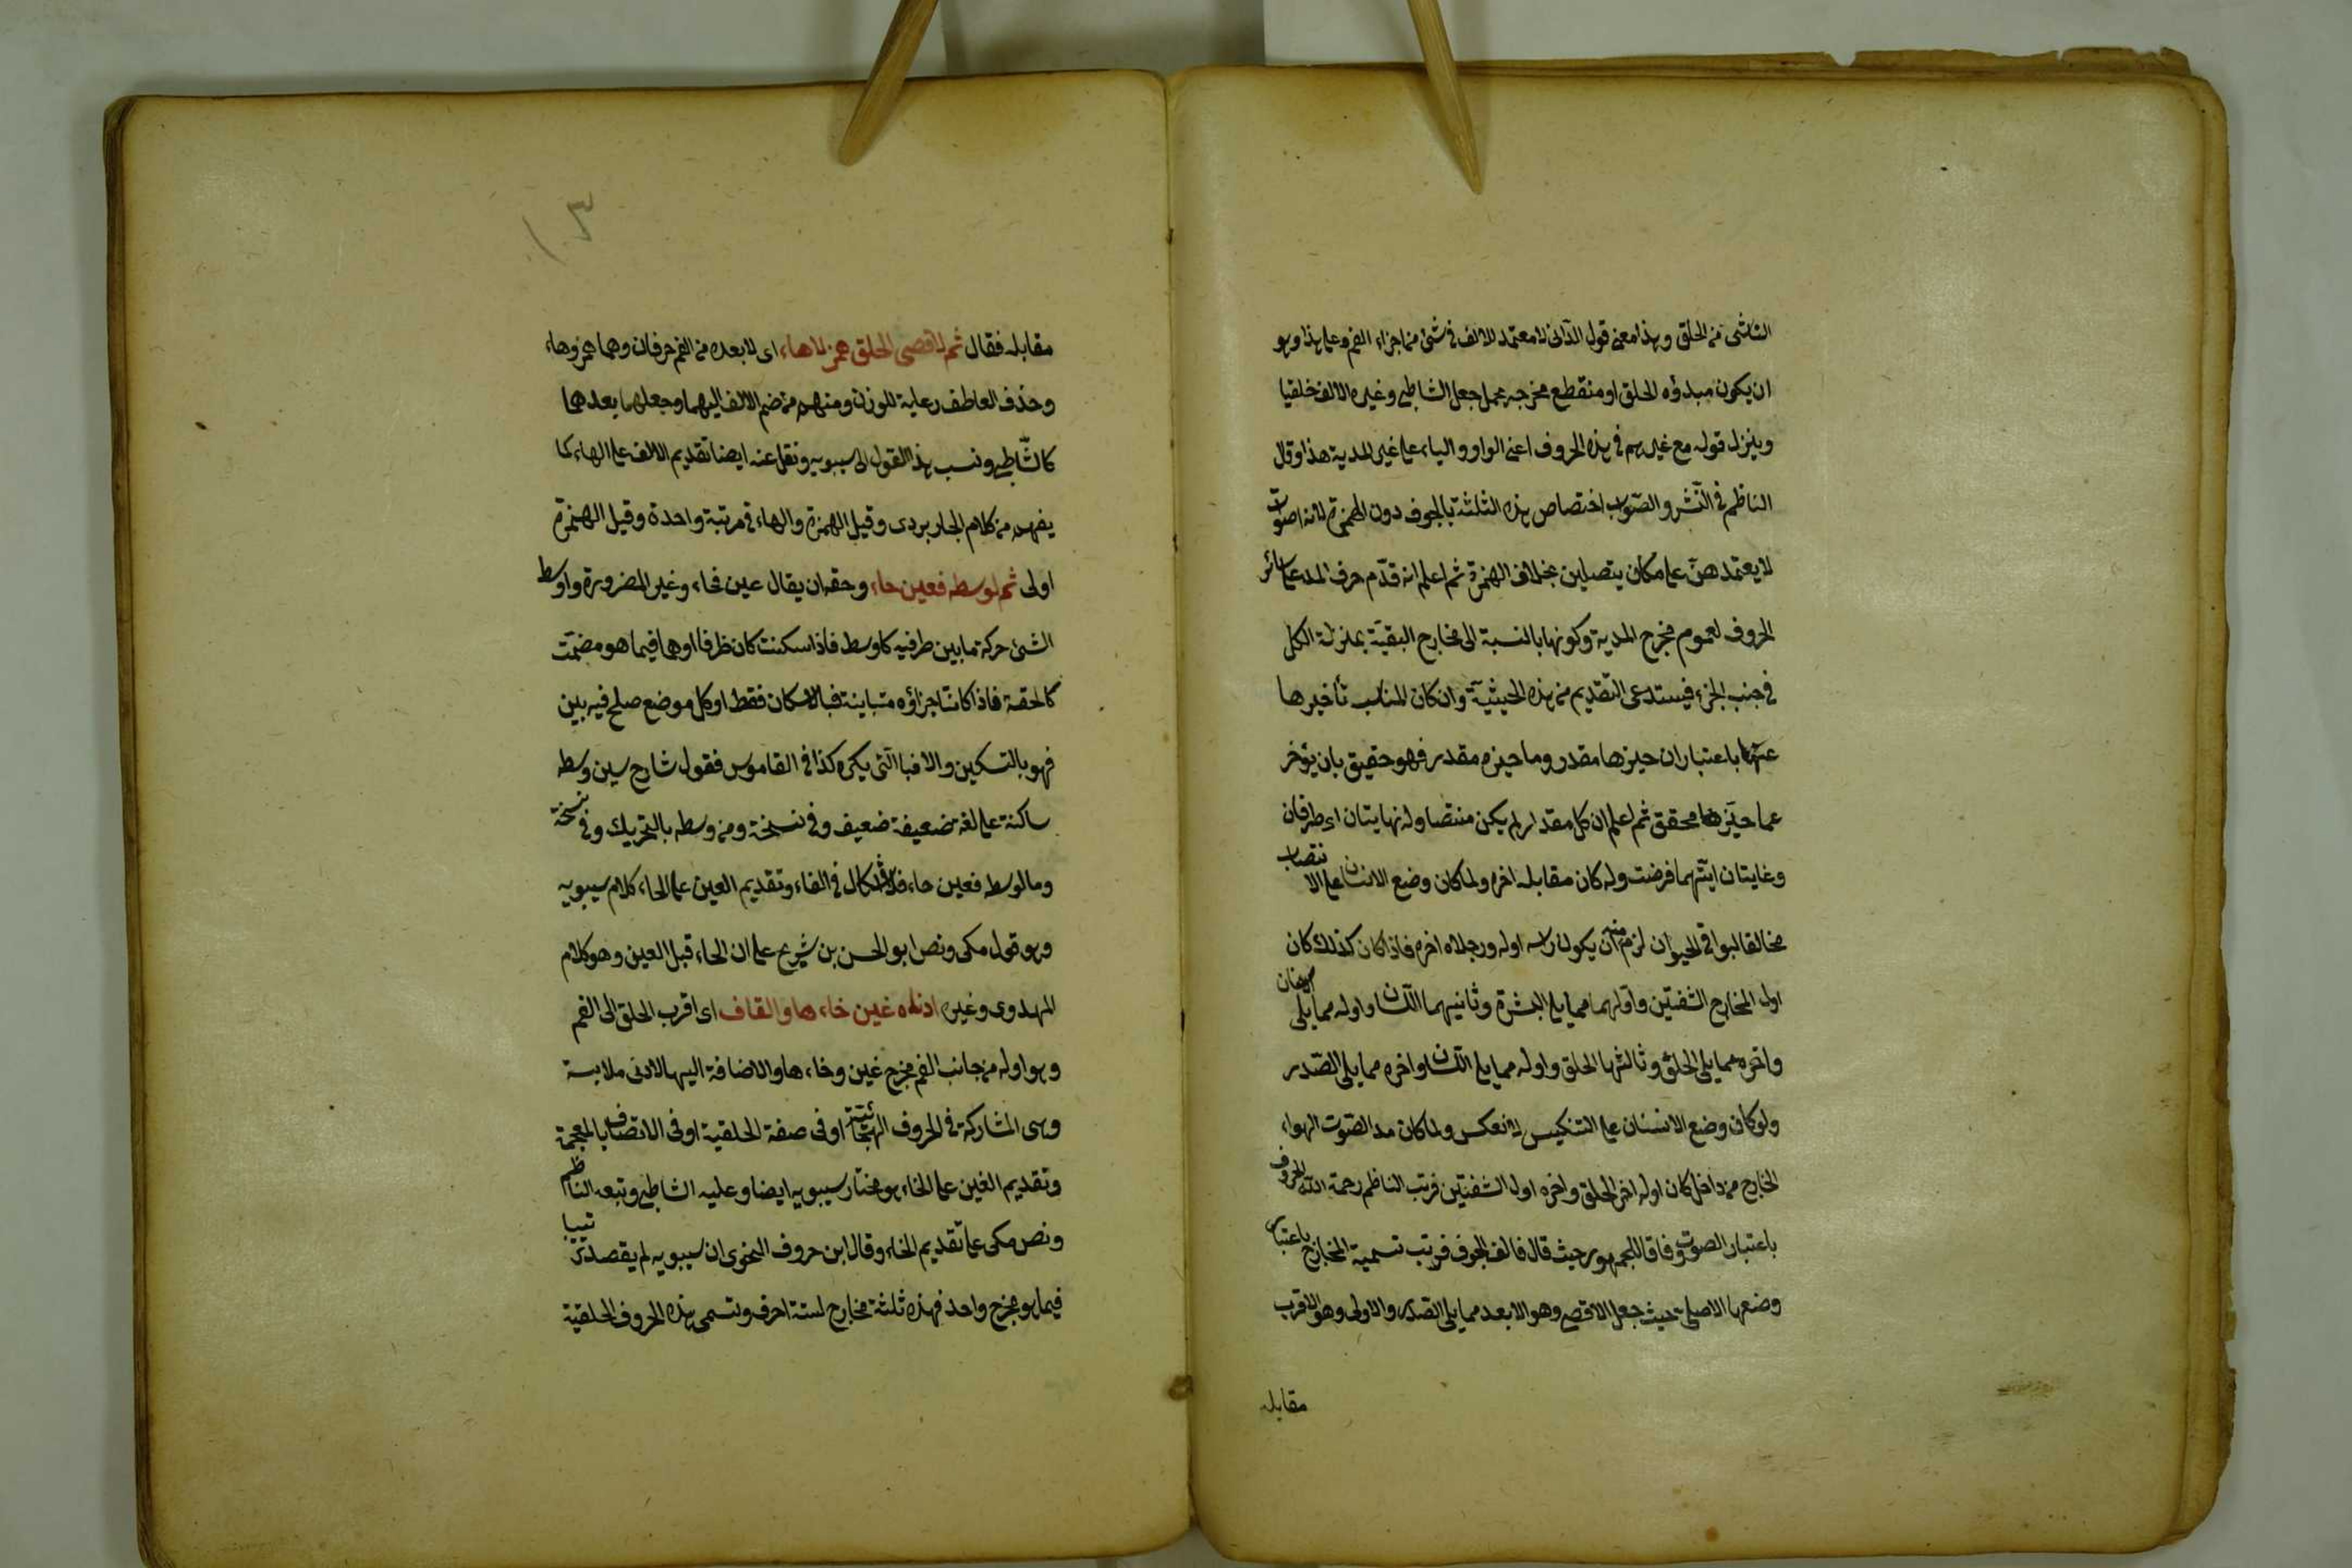 الناشئ من الحلق وهذا معنى قول الداني لا معتمد للالف في شئ من اجزاء الفم وعلى هذا وهو
ان يكون مبدؤه الحلق او منقطع مخرجه يحمل جعل الشاطبي وغيره الالف خلقيا
وينزل قوله مع غيرهم في هذه الحروف اعنى الواو والياء على غير المدية هذا وقال
الناظم في النشر والصواب اختصاص هذه الثلثة بالجوف دون الهمزة لانه اصوات
لا يعتمدهن على مكان يتصلين بخلاف الهمزة ثم اعلم انه قدم حرف المد على سائر
الحروف لعموم مخرج المدية وكونها بالنسبة الى مخارج البقية بمنزلة الكل
في جنب الجزء فيستدعى التقديم من هذه الحيثية وان كان المناسب تأخيرها
عنها باعتبار ان حيزها مقدر وما حيزه مقدر فهو حقيق بان يؤخر
عما حيزها محقق ثم اعلم ان كل مقدار لم يكن منتصا وله نهايتان اى طرفان
وغايتان ايتهما فرضت وله كان مقابله اخره ولما كان وضع الانسان على الانتصاب
مخالفا لبواقي الحيوان لزم منه ان يكون راسه اوله ورجلاه اخره فاذا كان كذلك كان
اول المخارج الشفتين واولهما مما يلى البشرة وثانيهما اللسان واوله مما يلى الاسنان
واخره مما يلى الحلق وثالثها الحلق واوله مما يلى اللسان واخره مما يلى الصدر
ولو كان وضع الانسان على التنكيس لانعكس ولما كان مد الصوت الهواء
الخارج من داخل كان اوله اخر الحلق واخره اول الشفتين فرتب الناظم رحمة الله الحروف
باعتبار الصوت وفاقا للجمهور حيث قال فالف الجوف فرتب تسمية المخارج باعتبار
وضعها الاصلى حيث جعل الاقصى وهو الابعد مما يلى الصدر والاولى وهو الاقرب
مقابله
١٣
مقابله فقال ثم لاقصى الحلق همز لاهاء اى لابعده من الفم حرفان وهما همز وهاء
وحذف العاطف رعاية للوزن ومنهم من ضم الالف اليهما وجعلها بعدها
كالشاطبي ونسب هذا القول الى سيبويه ونقل عنه ايضا تقديم الالف على الهاء كما
يفهم من كلام الجاربردى وقيل الهمزة والهاء في مرتبة واحدة وقيل الهمزة
اولى ثم لوسطه فعين حاء وحقه ان يقال عين فحاء وغير للضرورة واوسط
الشئ حركة ما بين طرفيه كاوسط فاذا سكنت كان ظرفا او هما فيما هو مصمت
كالحقة فاذا كانت اجزاؤه متباينة فبالاسكان فقط او كل موضع صلح فيه بين
فهو بالتسكين والا فبالتى يكره كذا في القاموس فقول شارح سين وسطه
ساكنة على لغة ضعيفة ضعيف وفي نسخة ومن وسطه بالتحريك وفي نسخة
وما لوسط فعين حاء فلا اشكال في الفاء وتقديم العين على الحاء كلام سيبويه
وهو قول مكى ونص ابو الحسن بن شريح على ان الحاء قبل العين وهو كلام
المهدوى وغيره ادناه غين خاء ها والقاف اى اقرب الحلق الى الفم
وهو اوله من جانب الفم مخرج غين وخاء ها والاضافة اليها لادنى ملابسة
وهى المشاركة في الحروف الهجائية او في صفة الحلقية او في الاتصاف بالمعجمة
وتقديم الغين على الخاء هو مختار سيبويه ايضا وعليه الشاطبي وتبعه الناظم
ونص مكى على تقديم الخاء وقال ابن خروف النحوى ان سيبويه لم يقصد ترتيبا
فيما هو مخرج واحد فهذه ثلثة مخارج لستة احرف وتسمى هذه الحروف الحلقية